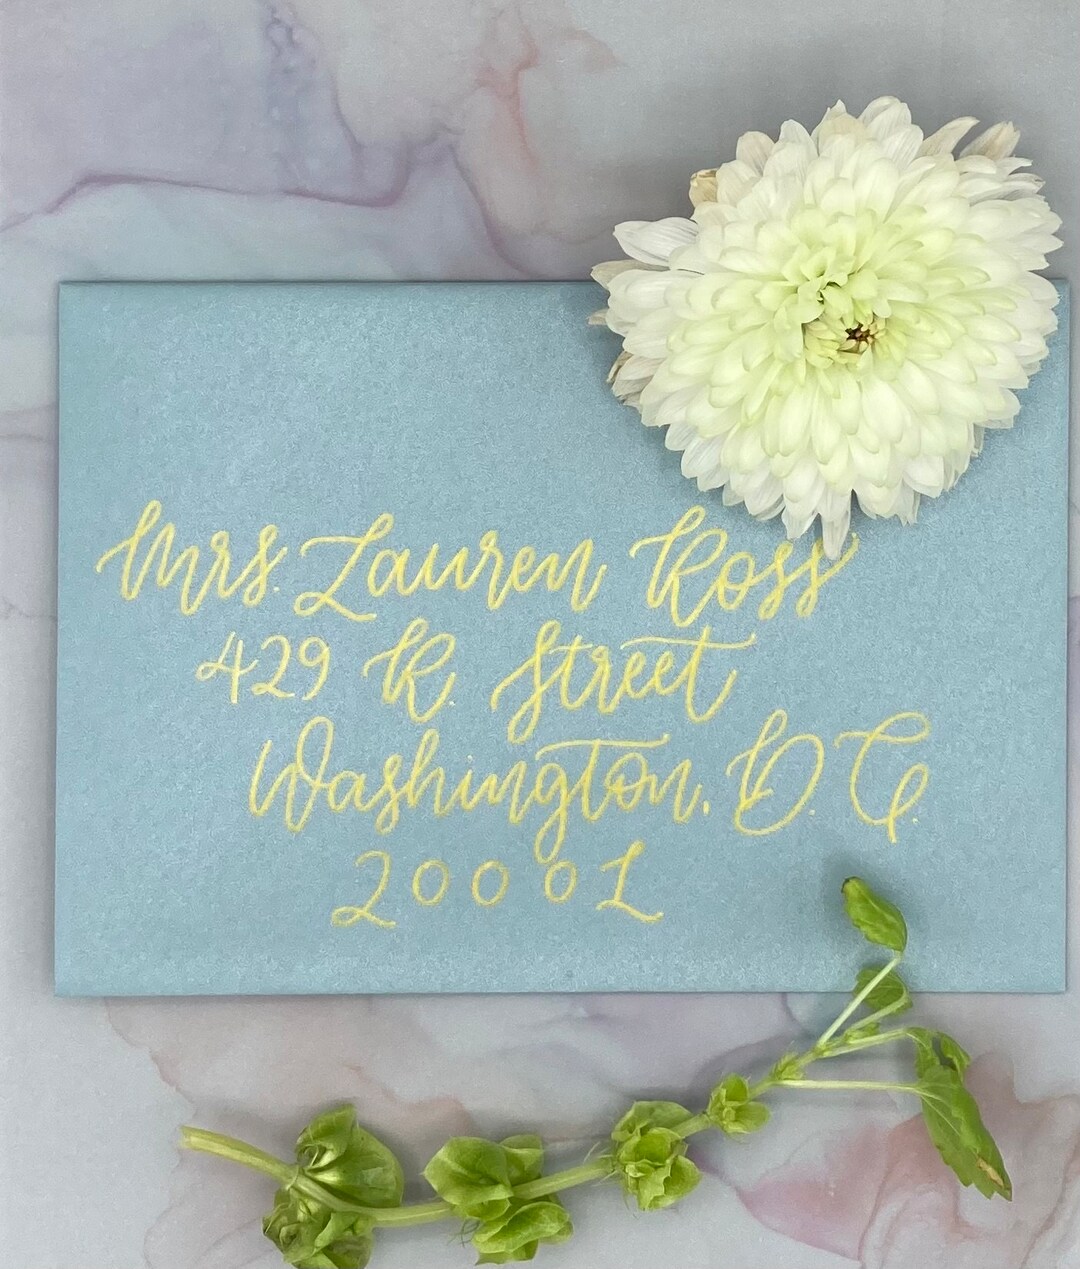 Mrs. Lauren Ross
429 R. Street
Washington, D.C.
20001